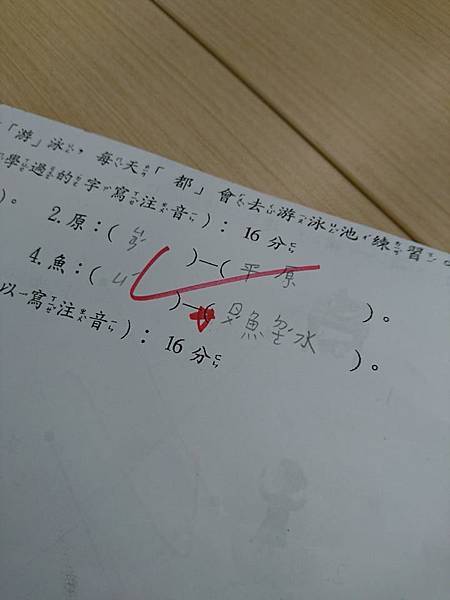 「游」泳，每天「都」會去游泳池練習。
學過的字寫注音）：16分
）。 2.原：（ㄩㄢˊ）—（平原）。
4.魚：（ㄩˊ）—（魚水）。
以寫注音）：16分